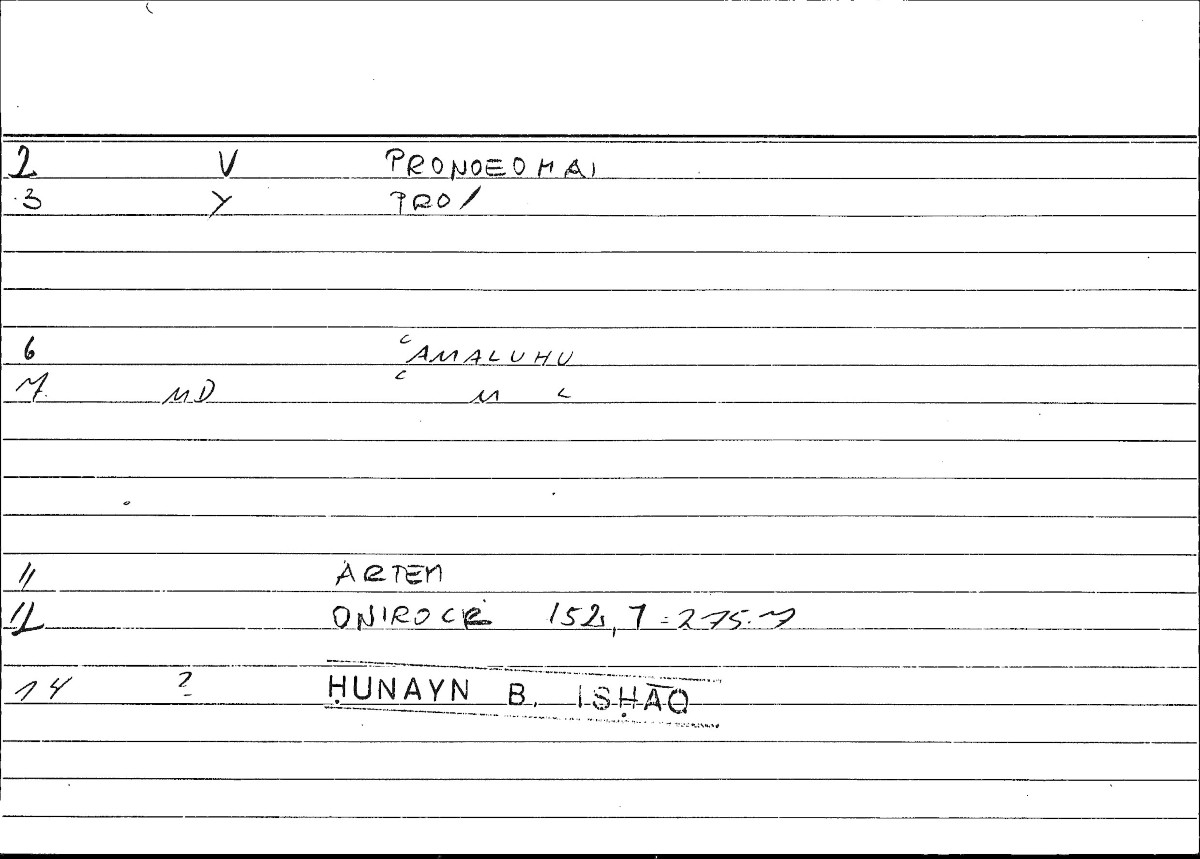 2 V PRONOEOMAI
3 Y PRO/
6 ʿAMALUHU
7 MD ʿ M L
11 ARTEM
12 ONIROCR 152, 7 = 275.7
14 ? ḤUNAYN B. ISḤĀQ